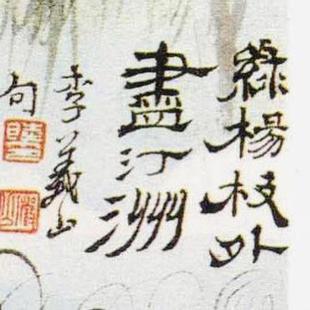 綠楊枝外
盡汀洲
李義山
句